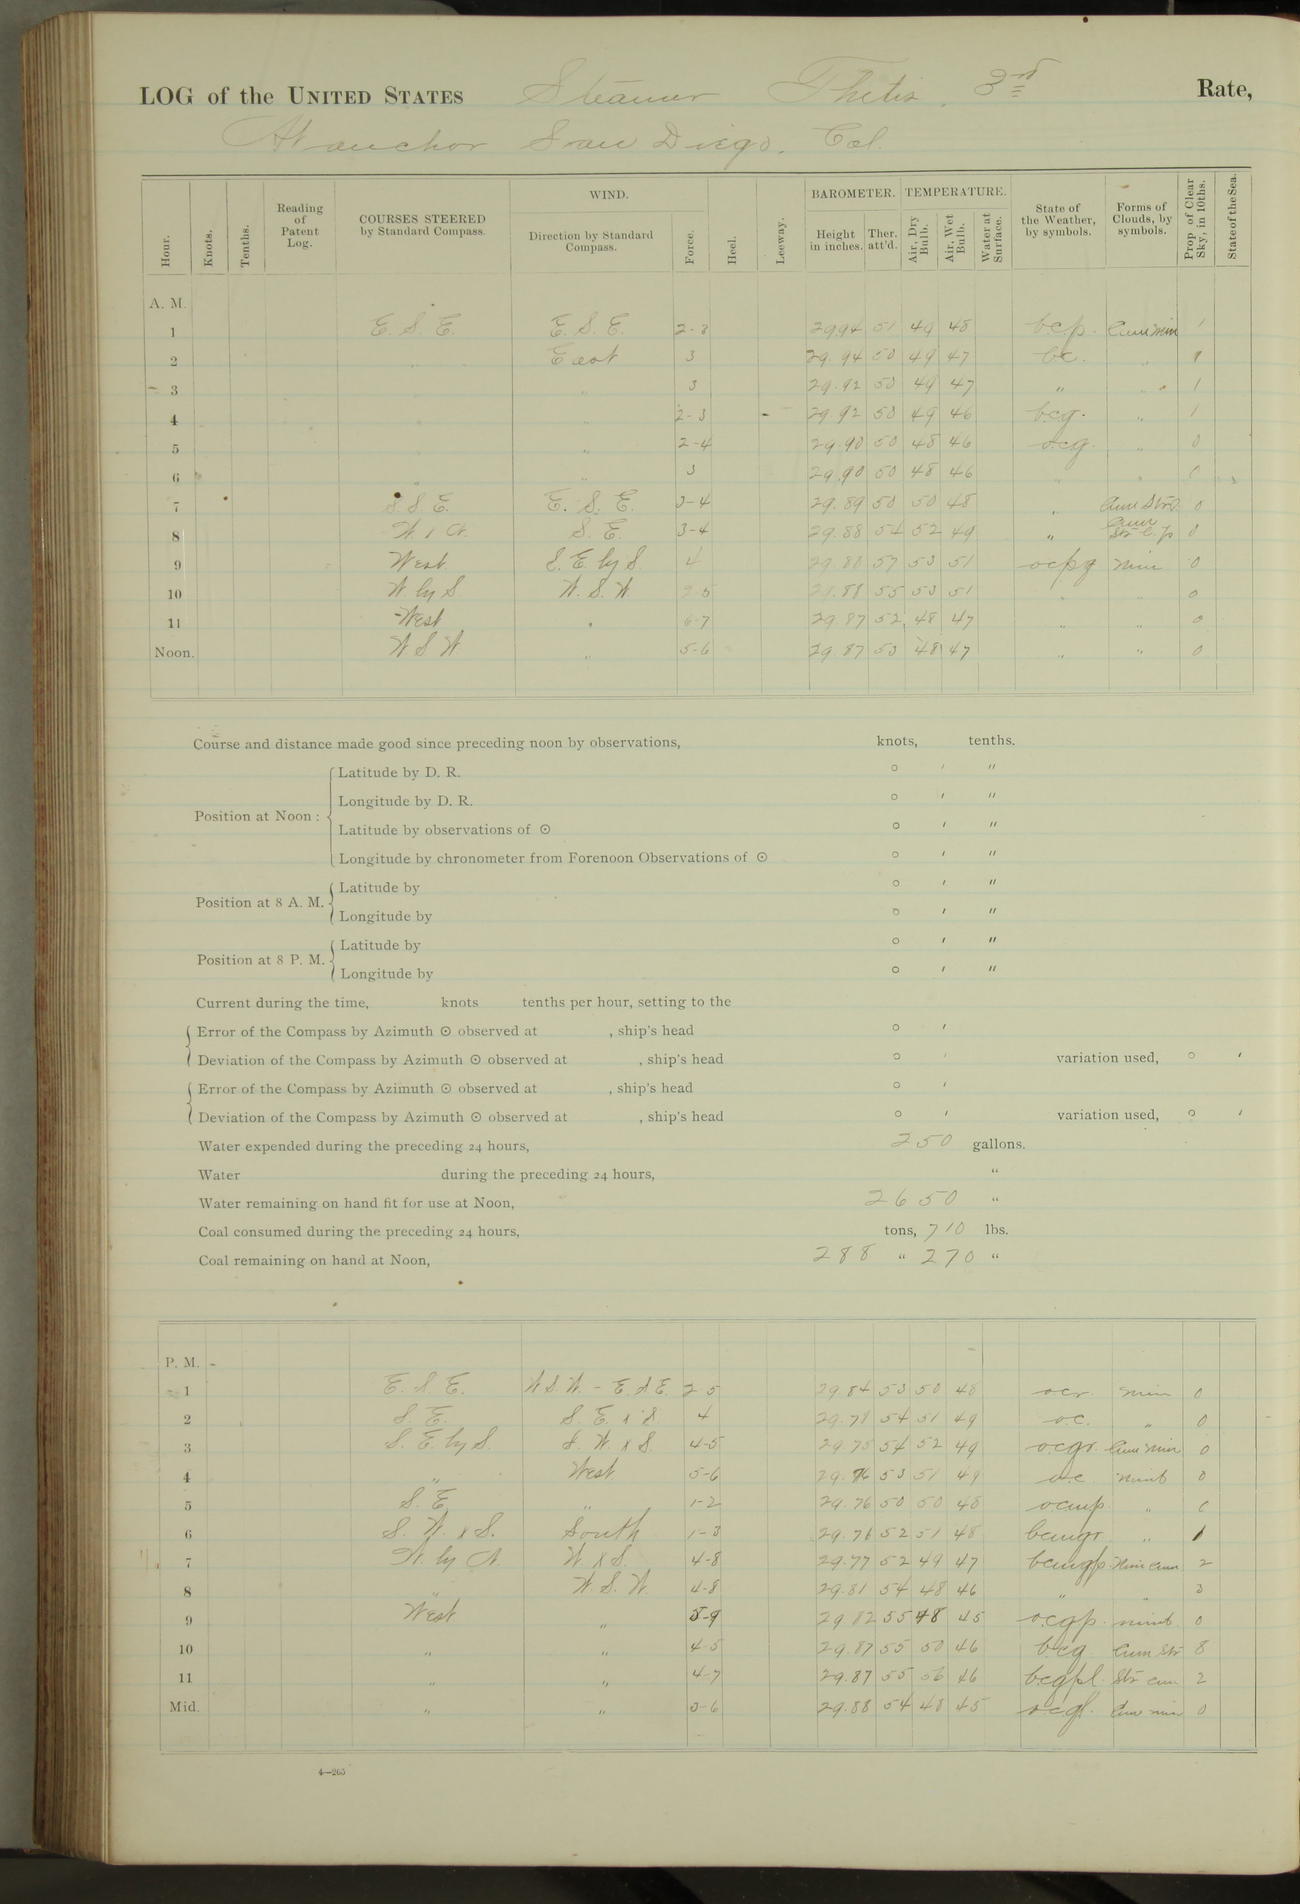 LOG of the UNITED STATES Steamer Thetis, 3rd Rate,
At anchor San Diego. Cal.
Hour. Knots. Tenths. Reading of Patent Log. COURSES STEERED by Standard Compass. WIND. Direction by Standard Compass. Force. Heel. Leeway. BAROMETER. Height in inches. Ther. att'd. TEMPERATURE. Air, Dry Bulb. Air, Wet Bulb. Water at Surface. State of the Weather, by symbols. Forms of Clouds, by symbols. Prop. of Clear Sky, in 10ths. State of the Sea.
A. M.
1 E. S. E. E. S. E. 2-3 29.94 51 49 48 bcp. Cum Nim 1
2 " East 3 29.94 50 49 47 bc. " 1
3 " 3 29.92 50 49 47 " " 1
4 " 2-3 29.92 50 49 46 bcg. " 1
5 " 2-4 29.90 50 48 46 ocg. " 0
6 " " 3 29.90 50 48 46 " " 0
7 S. S. E. E. S. E. 3-4 29.89 50 50 48 " Cum Str 0
8 S. E. 3-4 29.88 54 52 49 " Cum Str 0
9 West S. E. by S. 4 29.88 57 53 51 ocpg Nim 0
10 W. by S W. S. W 55 53 51 " " 0
11 West " 6-7 29.87 52 48 47 " " 0
Noon. W S W " 5-6 29.87 53 48 47 " " 0
Course and distance made good since preceding noon by observations, knots, tenths.
Position at Noon :
Latitude by D. R. ° ′ ″
Longitude by D. R. ° ′ ″
Latitude by observations of ⊙ ° ′ ″
Longitude by chronometer from Forenoon Observations of ⊙ ° ′ ″
Position at 8 A. M.
Latitude by ° ′ ″
Longitude by ° ′ ″
Position at 8 P. M.
Latitude by ° ′ ″
Longitude by ° ′ ″
Current during the time, knots tenths per hour, setting to the
Error of the Compass by Azimuth ⊙ observed at , ship's head ° ′
Deviation of the Compass by Azimuth ⊙ observed at , ship's head ° ′ variation used, ° ′
Error of the Compass by Azimuth ⊙ observed at , ship's head ° ′
Deviation of the Compass by Azimuth ⊙ observed at , ship's head ° ′ variation used, ° ′
Water expended during the preceding 24 hours, 250 gallons.
Water during the preceding 24 hours, "
Water remaining on hand fit for use at Noon, 2650 "
Coal consumed during the preceding 24 hours, tons, 710 lbs.
Coal remaining on hand at Noon, 288 " 270 "
P. M.
1 E. S. E. W S. W. - E. S E. 2-5 29.84 53 50 48 ocr. Nim 0
2 S. E. S. E. x S. 4 29.78 54 51 49 o.c. " 0
3 S. E. by S. S. W. x S. 4-5 29.75 54 52 49 ocgr. Cum Nim 0
4 " West 5-6 29.76 53 51 49 o.c Nimb 0
5 S. E. " 1-2 29.76 50 50 48 ocmp. " 0
6 S. W. x S. South 1-3 29.76 52 51 48 bcmgr. " 1
7 W. by N. W. x S. 4-8 29.77 52 49 47 bcmgp. Nim Cum 2
8 " W. S. W. 4-8 29.81 54 48 46 " " 3
9 West " 29.82 55 48 45 ocgp. Nimb. 0
10 " " 4-5 29.87 55 50 46 bcg Cum Str 8
11 " " 4-7 29.87 55 46 bcgpl. Str Cum 2
Mid. " " 3-6 29.88 54 48 45 ocgl. Cum Nim 0
4—265